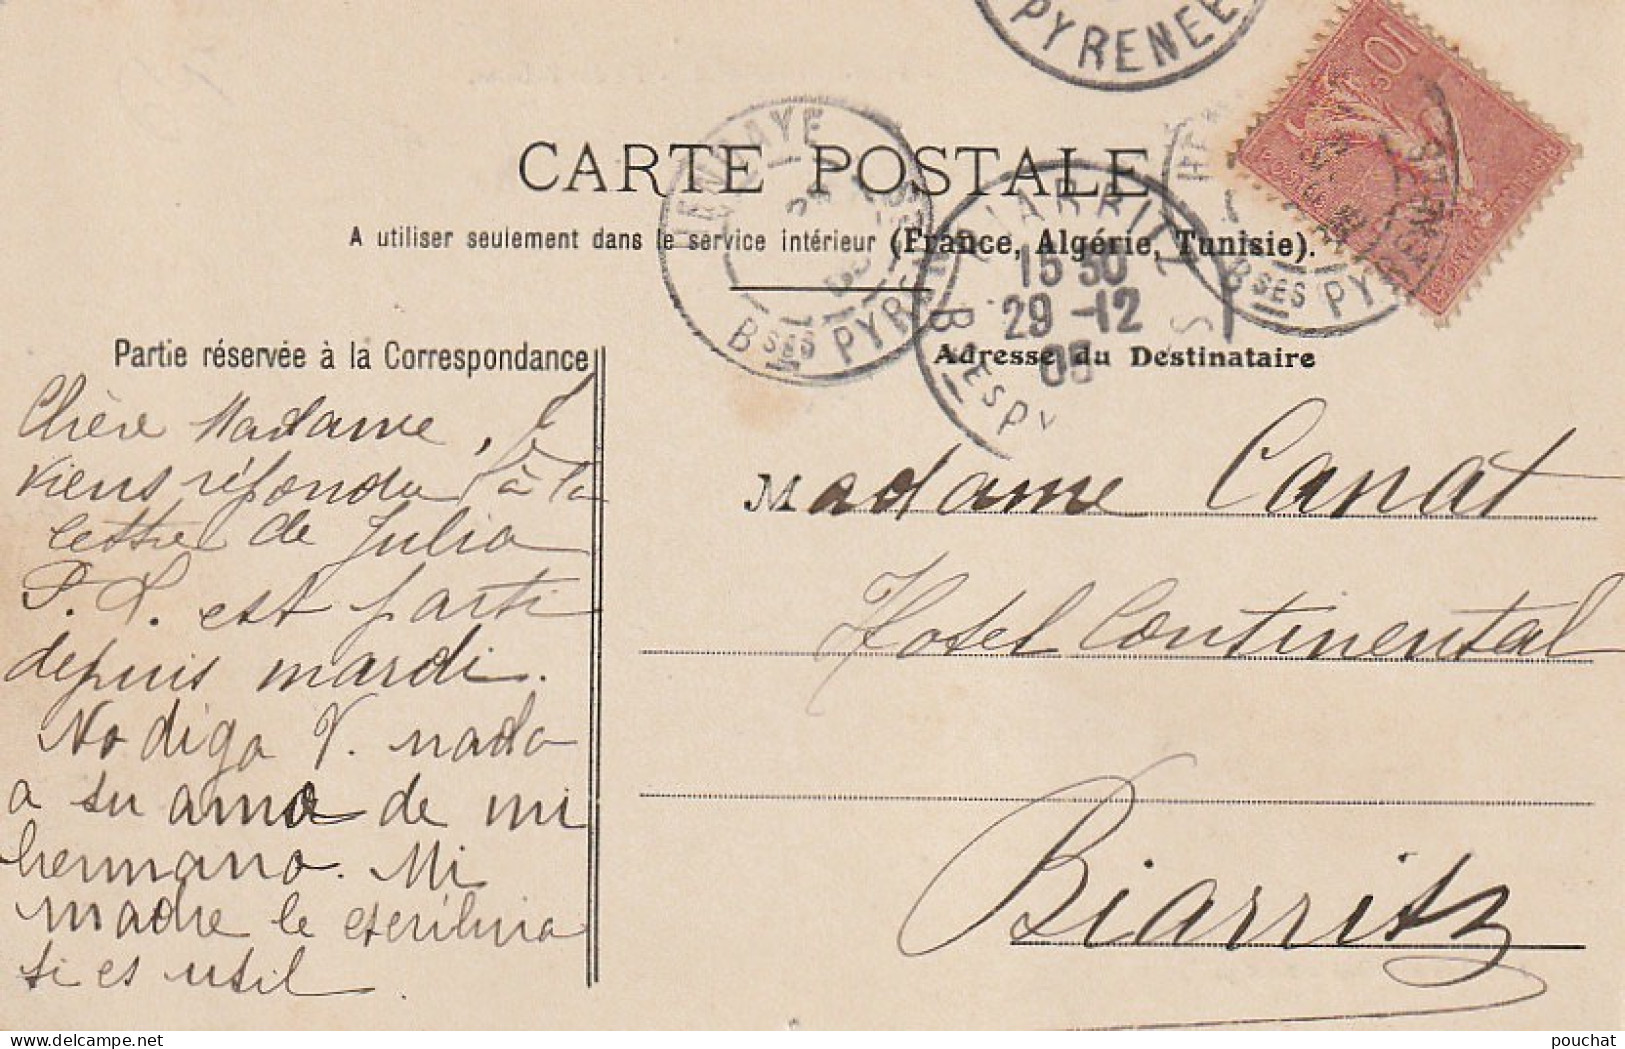 PYRENEE
10c
HENDAYE
Bses PYRENEES
CARTE POSTALE
A utiliser seulement dans le service intérieur (France, Algérie, Tunisie).
BIARRITZ
15 30
29 -12
05
Bses PY
Bses PY
Partie réservée à la Correspondance
Adresse du Destinataire
Chère Madame, Je
viens répondre à la
lettre de Julia
P. L. est parti
depuis mardi.
No diga V. nada
a su ama de mi
hermano. Mi
madre le escribira
si es util.
Madame Canat
Hotel Continental
Biarritz
pouchat